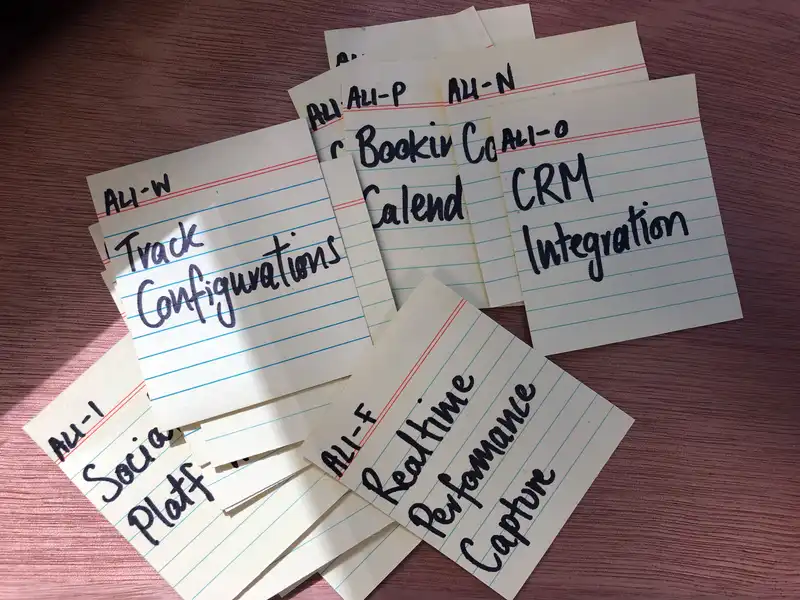 ALI-W
Track
Configurations
ALI-P
Bookin
Calend
ALI-N
Co
ALI-O
CRM
Integration
ALI-I
Socia
Platf
ALI-F
Realtime
Performance
Capture
ALI